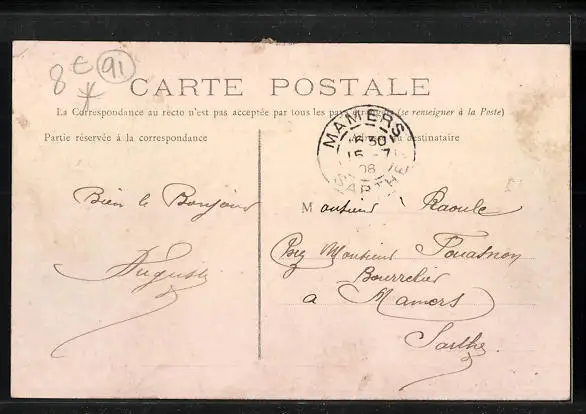 8€
91
CARTE POSTALE
La Correspondance au recto n'est pas acceptée par tous les pays étrangers (se renseigner à la Poste)
Partie réservée à la correspondance
Adresse du destinataire
MAMERS
6 30
15 - 7
08
SARTHE
Bien le Bonjour
Auguste
Monsieur Raoule
Chez Monsieur Fouasnon
Bourrelier
a Mamers
Sarthe